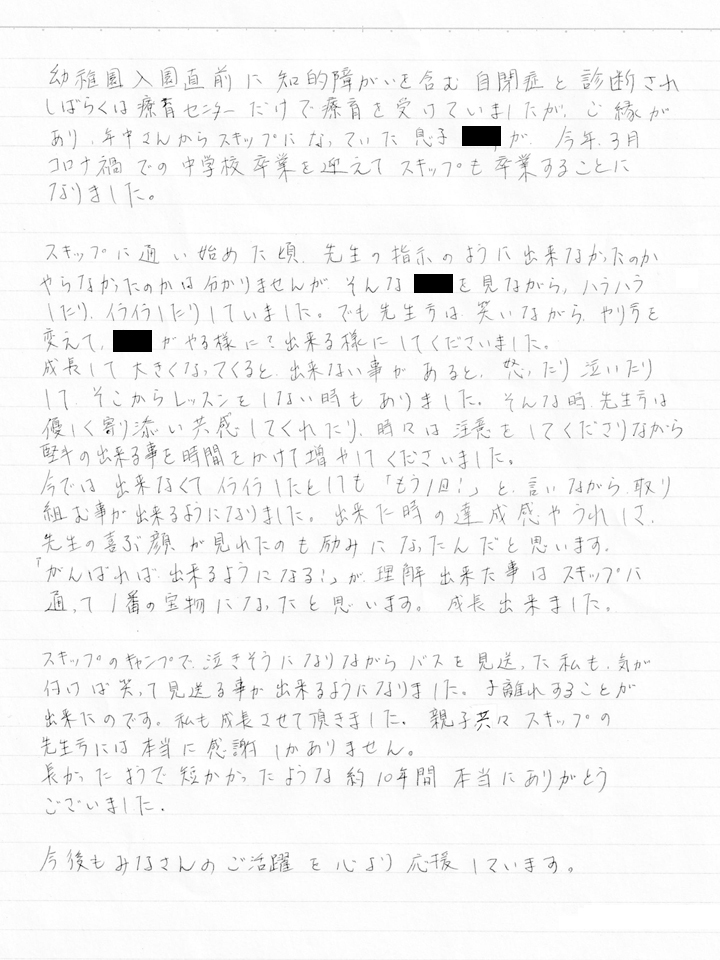 幼稚園入園直前に知的障がいを含む自閉症と診断され
しばらくは療育センターだけで療育を受けていましたが、ご縁が
あり、年中さんからスキップになっていた息子 が、今年、3月
コロナ禍での中学校卒業を迎えてスキップも卒業することに
なりました。
スキップに通い始めた頃、先生の指示のように出来なかったのか
やらなかったのかは分かりませんが、そんな を見ながら、ハラハラ
したり、イライラしたりしていました。でも先生方は、笑いながら、やり方を
変えて、 がやる様に?出来る様にしてくださいました。
成長して大きくなってくると、出来ない事があると、怒ったり泣いたり
して、そこからレッスンをしない時もありました。そんな時、先生方は
優しく寄り添い共感してくれたり、時々は注意をしてくださりながら
の出来る事を時間をかけて増やしてくださいました。
今では、出来なくてイライラしたとしても「もう1回!」と、言いながら、取り
組む事が出来るようになりました。出来た時の達成感やうれしさ、
先生の喜ぶ顔が見れたのも励みになったんだと思います。
「がんばれば、出来るようになる!」が理解出来た事はスキップに
通って1番の宝物になったと思います。成長出来ました。
スキップのキャンプで、泣きそうになりながらバスを見送った私も、気が
付けば笑って見送る事が出来るようになりました。子離れすることが
出来たのです。私も成長させて頂きました。親子共々スキップの
先生方には本当に感謝しかありません。
長かったようで短かかったような約10年間本当にありがとう
ございました。
今後もみなさんのご活躍を心より応援しています。